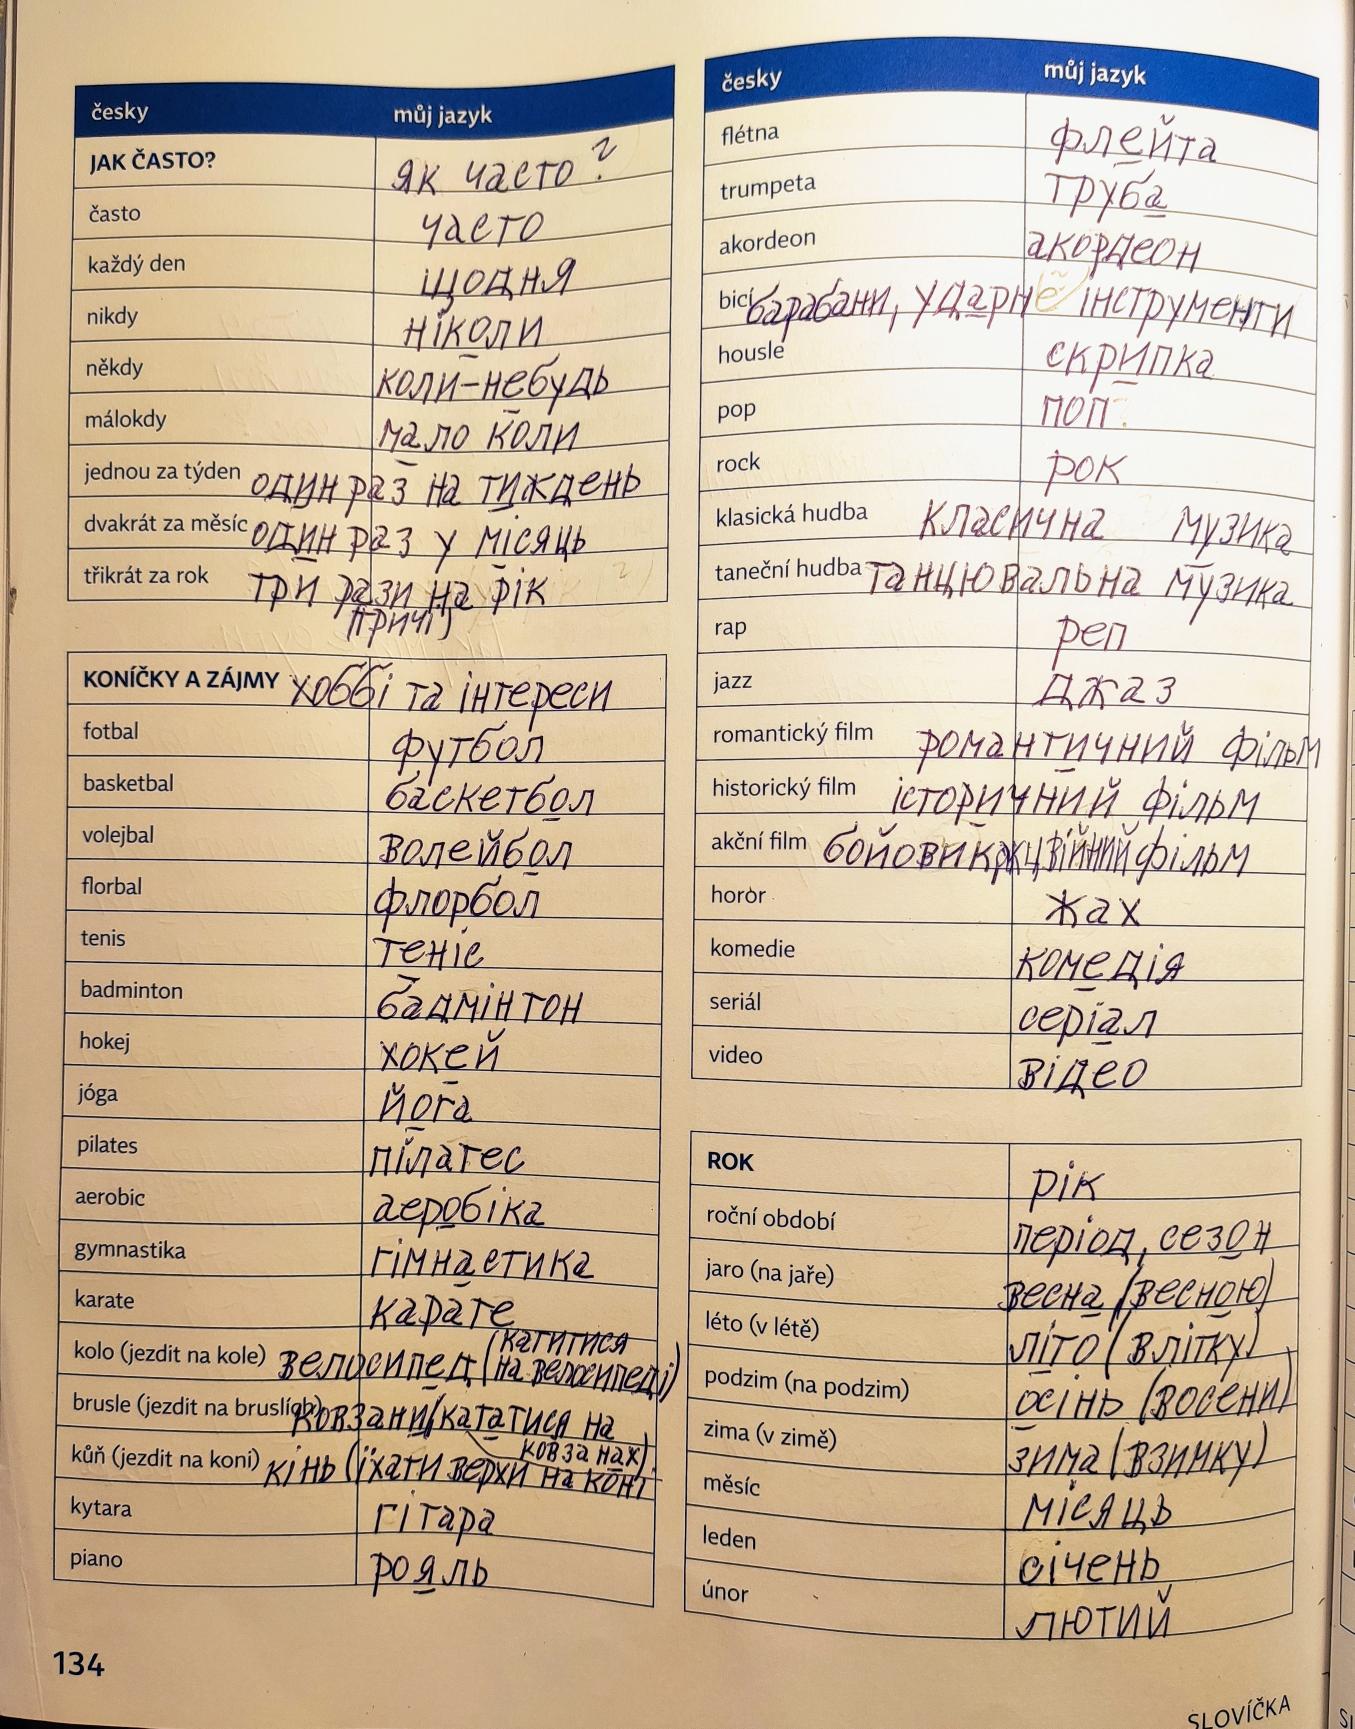 česky můj jazyk
JAK ČASTO? як часто?
často часто
každý den щодня
nikdy ніколи
někdy коли-небудь
málokdy мало коли
jednou za týden один раз на тиждень
dvakrát za měsíc один раз у місяць
třikrát za rok три рази на рік
KONÍČKY A ZÁJMY хоббі та інтереси
fotbal футбол
basketbal баскетбол
volejbal волейбол
florbal флорбол
tenis теніс
badminton бадмінтон
hokej хокей
jóga йога
pilates пілатес
aerobic аеробіка
gymnastika гімнастика
karate карате
kolo (jezdit na kole) велосипед (катитися на велосипеді)
brusle (jezdit na bruslích) ковзани (кататися на ковзанах)
kůň (jezdit na koni) кінь (їхати верхи на коні
kytara гітара
piano рояль
134
česky můj jazyk
flétna флейта
trumpeta труба
akordeon акордеон
bicí барабани, ударне інструменти
housle скрипка
pop поп
rock рок
klasická hudba класична музика
taneční hudba танцювальна музика
rap реп
jazz джаз
romantický film романтичний фільм
historický film історичний фільм
akční film бойовик фільм
horor жах
komedie комедія
seriál серіал
video відео
ROK рік
roční období період, сезон
jaro (na jaře) весна (весною)
léto (v létě) літо (влітку)
podzim (na podzim) осінь (восени)
zima (v zimě) зима (взимку)
měsíc місяць
leden січень
únor лютий
SLOVÍČKA